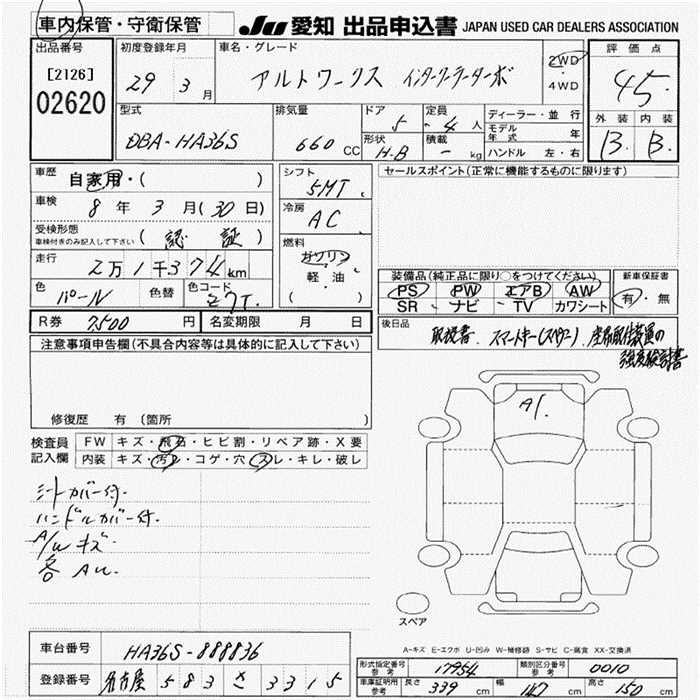 車内保管・守衛保管 JU 愛知 出品申込書 JAPAN USED CAR DEALERS ASSOCIATION
出品番号 初度登録年月 車名・グレード 評価点
[2126] 29 3 月 アルトワークス インタークーラーターボ 2WD・4WD 4.5
02620 型式 排気量 ドア 5 定員 4 人 ディーラー・並行 外装 内装
DBA-HA36S 660 CC 形状 H-B 積載 - kg モデル年式 年 B B
ハンドル 左・右
車歴 自家用・( ) シフト 5MT セールスポイント(正常に機能するものに限ります)
車検 8 年 3 月(30 日) 冷房 AC
受検形態 車検付きのみ記入して下さい (認 証)
燃料 ガソリン・軽・油 ( )
走行 2万1千374km
装備品(純正品に限り○をつけてください) 新車保証書
PS PW エアB AW 有・無
SR ナビ TV カワシート
色 パール 色替 色コード Z7T
R券 7500 円 名変期限 月 日
後日品 取扱書 スマートキー(スペア)
注意事項申告欄(不具合内容等は具体的に記入して下さい)
A1
修復歴 有(箇所 )
検査員記入欄 FW キズ・飛石・ヒビ割・リペア跡・X要
内装 キズ・汚レ・コゲ・穴・スレ・キレ・破レ
シートカバー付.
ハンドルカバー付.
A/W キズ
各 AU.
スペア
A-キズ E-エクボ U-凹み W-補修跡 S-サビ C-腐食 XX-交換済
車台番号 HA36S-888836
登録番号 名古屋 583 さ 3315
形式指定番号 参考 17954 類別区分番号 参考 0010
車庫証明用 参考 長さ 339 cm 幅 147 cm 高さ 150 cm